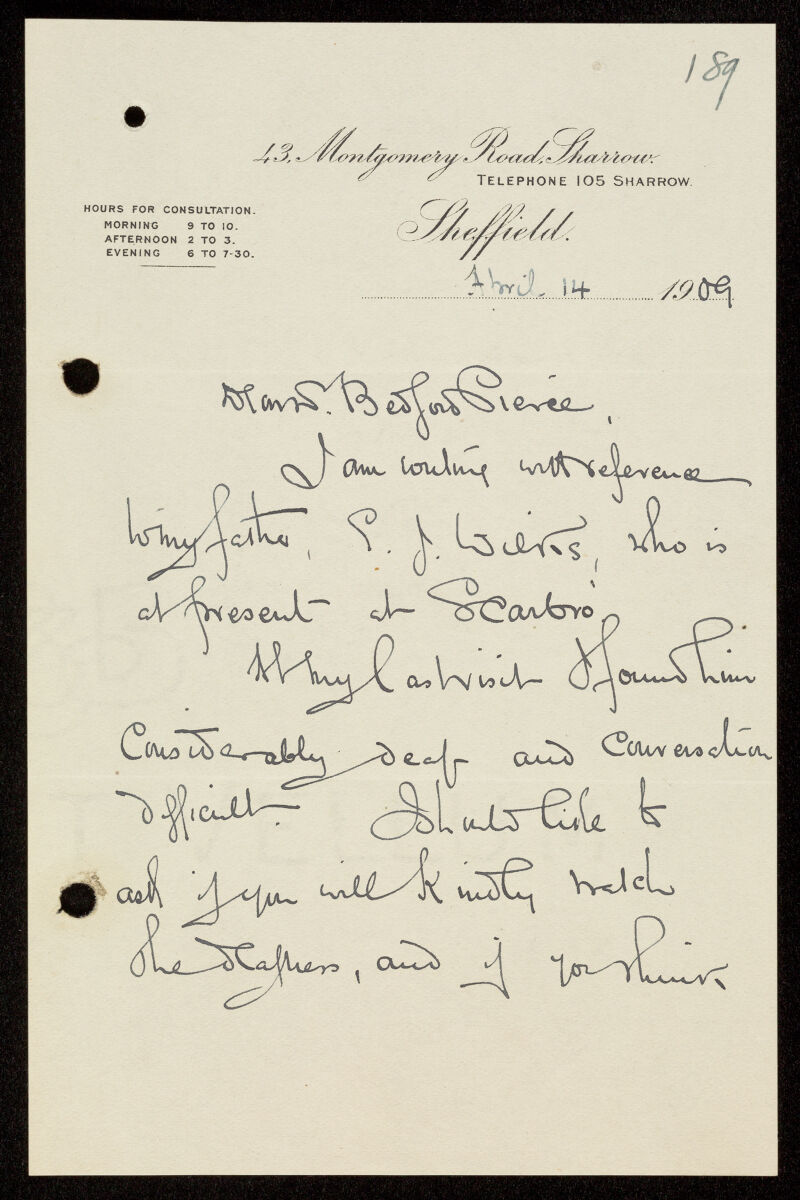 189
43, Montgomery Road, Sharrow.
TELEPHONE 105 SHARROW.
HOURS FOR CONSULTATION.
MORNING 9 TO 10.
AFTERNOON 2 TO 3.
EVENING 6 TO 7-30.
Sheffield.
April 14 1909
Dear Dr. Bedford Pierce,
I am writing with reference
to my father, E. J. Wilkes, who is
at present at Scarbro'
At my last visit I found him
Considerably deaf and Conversation
difficult. I should like to
ask if you will Kindly watch
the deafness, and if you think